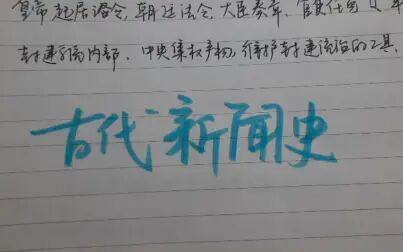 皇帝起居谕令,朝廷法令,大臣奏章、官员任免
封建统治内部.中央集权产物,维护封建统治的工具.
古代新闻史